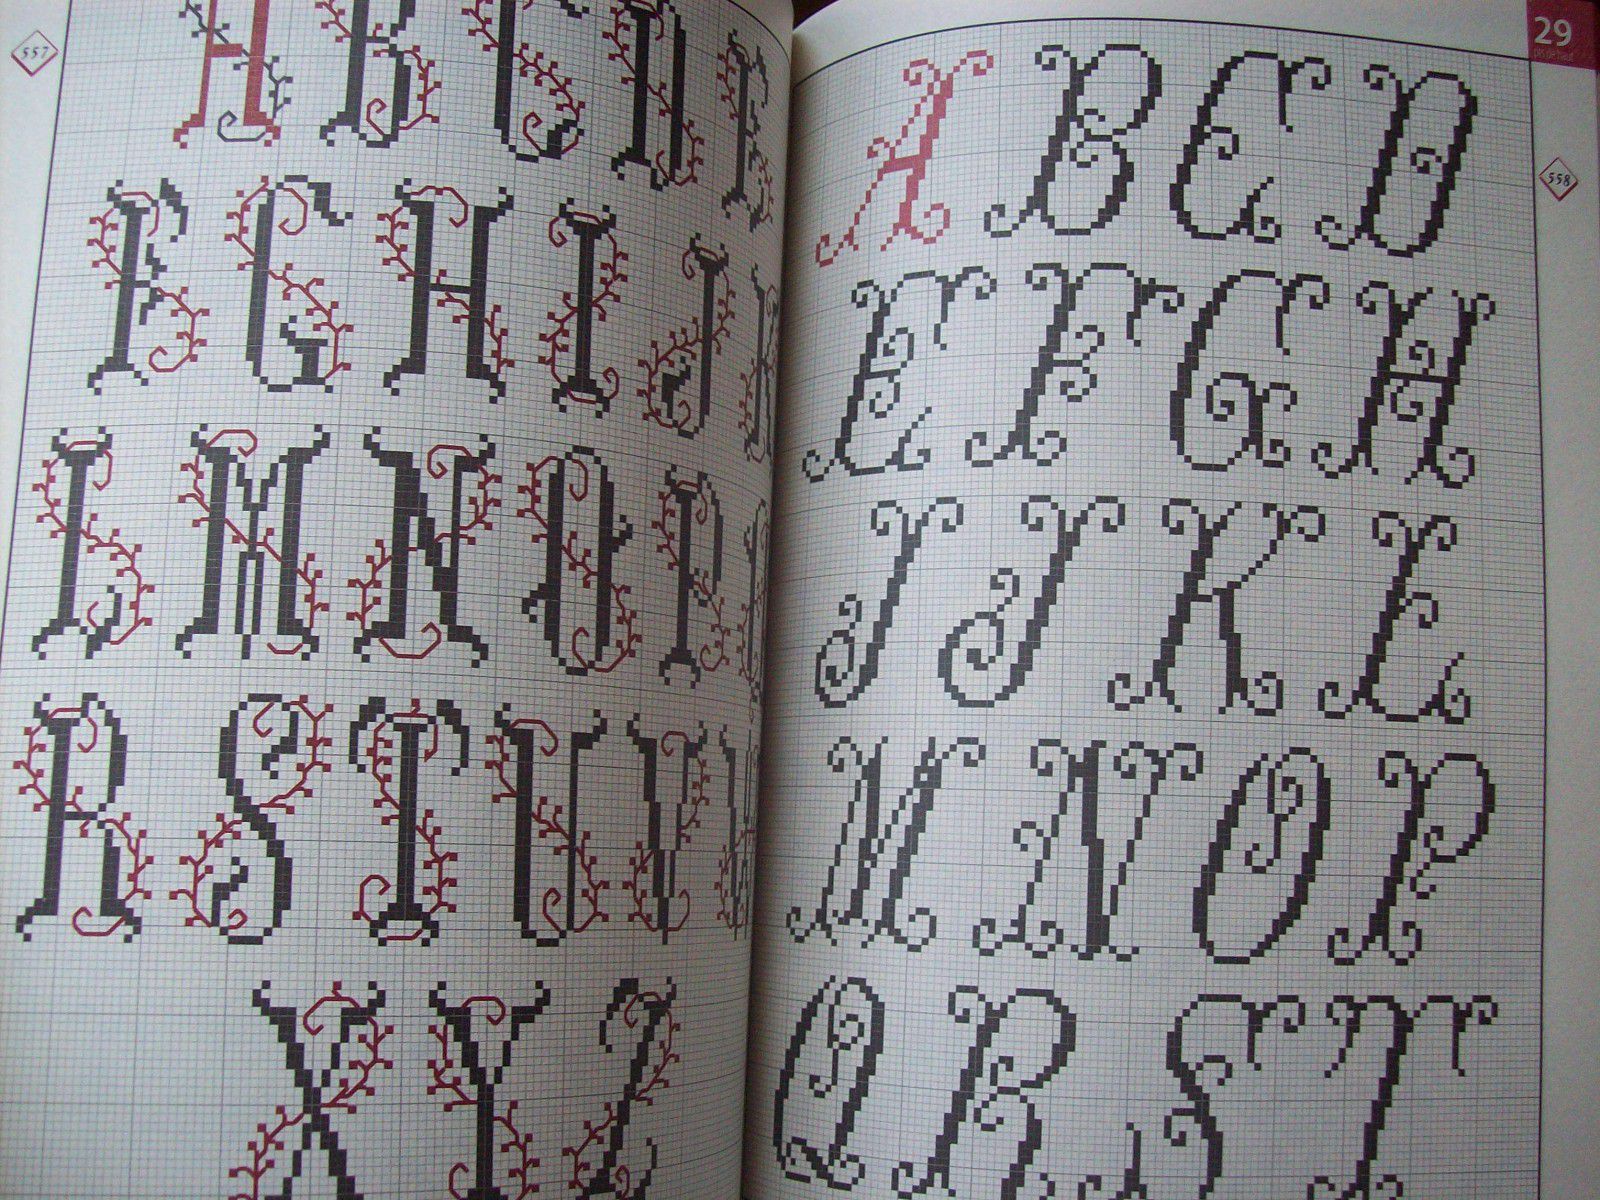 557
A B C D E
F G H I J K
L M N O P Q
R S T U V W
X Y Z
29
558
A B C D
E F G H
I J K L
M N O P
Q R S T